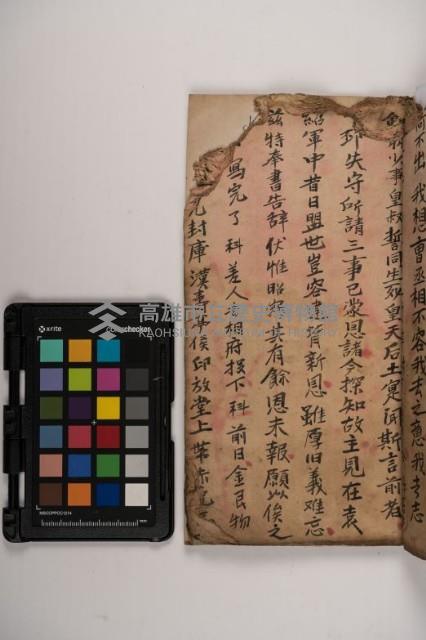 不出我想曹丞相不容我去之意我去志
少事皇叔誓同生死皇天后土寔聞斯言前者
邳失守所請三事已蒙恩諾今探知故主見在袁
紹軍中昔日盟世豈容背新恩雖厚旧義難忘
茲特奉書告辞伏惟照其有餘恩未報願以俟之
寫完了科差人相府投下科前日金艮物
封庫漢壽亭侯印放堂上帶赤
高雄市立歷史博物館
x-rite
colorchecker
MSCCPPCC1214
mm